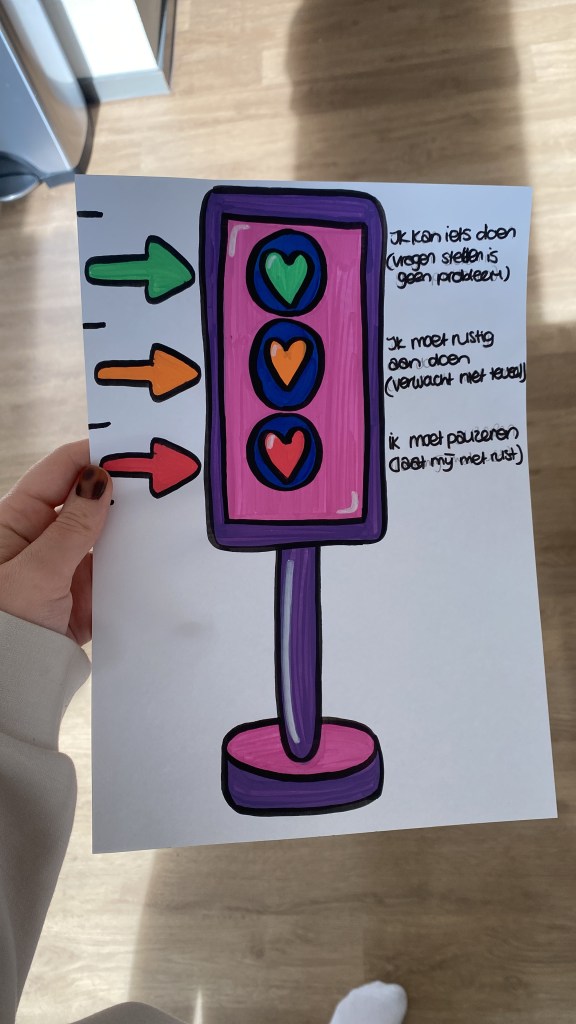 Ik kan iets doen
(vragen stellen is
geen probleem)
Ik moet rustig
aan doen
(verwacht niet teveel)
ik moet pauzeren
(laat mij met rust)